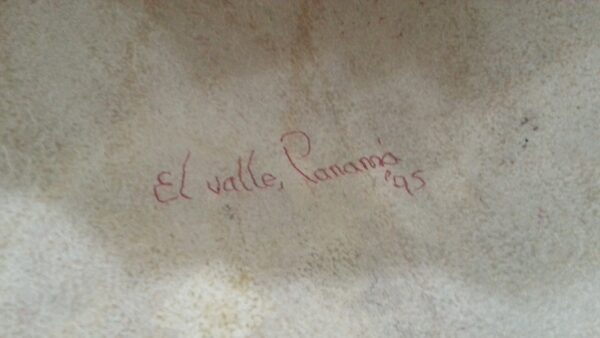 El valle, Panamá
'95